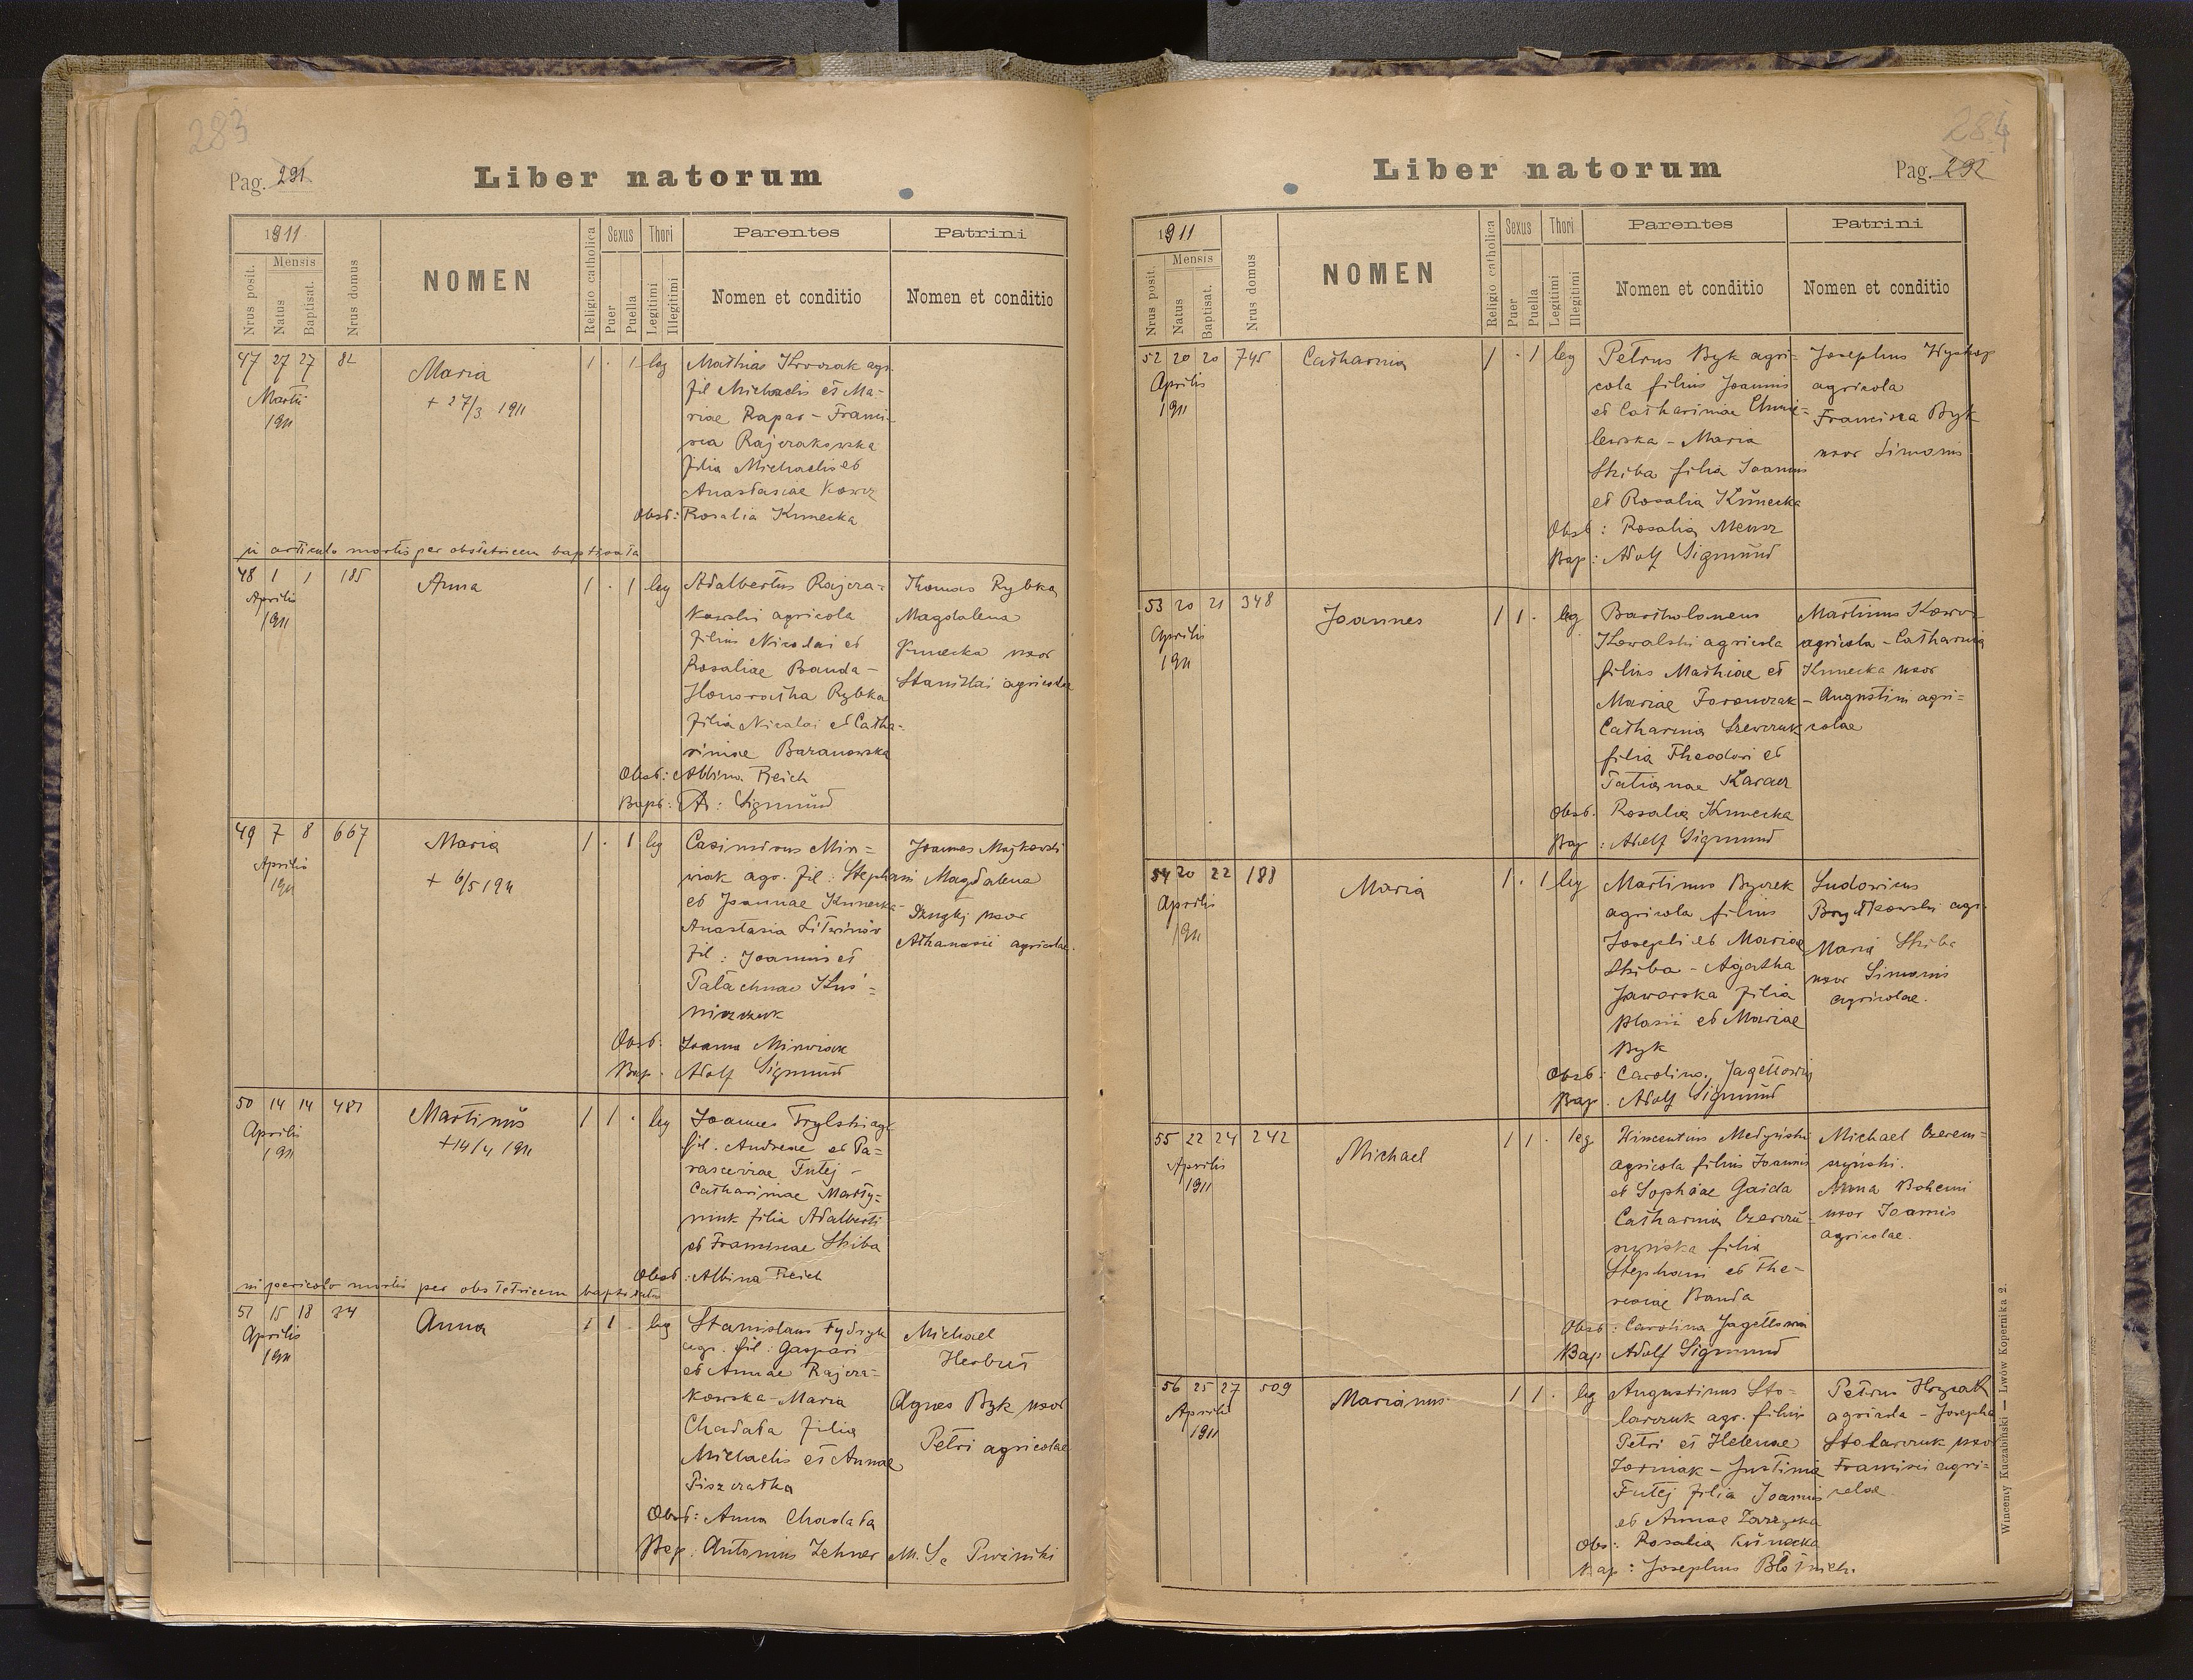 283
Pag. 291
Liber natorum
1911
Nrus posit.
Mensis
Natus
Baptisat.
Nrus domus
NOMEN
Religio catholica
Sexus
Puer
Puella
Thori
Legitimi
Illegitimi
Parentes
Nomen et conditio
Patrini
Nomen et conditio
47 27 27 82
Martii
1911
Maria
+ 27/3 1911
1 . 1 leg
Mathias agr.
fil Michaelis et Ma-
riae Rapas - Franci-
sca Rajczakowska
filia Michaelis et
Anastasiae
Obst: Rosalia Kunecka
in articulo mortis per obstetricem baptisata
48 1 1 185
Aprilis
1911
Anna
1 . 1 leg
Adalbertus Rajcza=
kowski agricola
filius Nicolai et
Rosaliae Banda -
Honoratha Rybka
filia Nicolai et Catha-
rinae Baranowska
Obst: Albina Reich
Bapt: Ad: Sigmund
Thomas Rybka
Magdalena
Kunecka uxor
Stanislai agricolae
49 7 8 667
Aprilis
1911
Maria
+ 6/5 1911
1 . 1 leg
Casimirus Min=
wiak agr. fil: Stephani
et Joannae Kunecka -
Anastasia Litwinów
fil: Joannis et
Palachnae Kuś=
niszczuk
Obst: Joanna Minwiak
Bap: Adolf Sigmund
Joannes Majkowski
Magdalena
uxor
Athanasii agricolae.
50 14 14 487
Aprilis
1911
Martinus
+ 14/4 1911
1 1 . leg
Joannes Trylski agr.
fil. Andreae et Pa=
rascevirae Futej -
Catharinae Marty=
niuk filia Adalberti
et Franciscae Skiba
Obst: Albina Reich
in periculo mortis per obstetricem baptisatus
51 15 18 34
Aprilis
1911
Anna
1 1 . leg
Stanislaus Fydryk
agr. fil: Gaspari
et Annae Rajcza=
kowska - Maria
Chadata filia
Michaelis et Annae
Piszczatka
Obst: Anna Chadata
Bap: Antonius Zehner M. S.
Michael
Herbut
Agnes Byk uxor
Petri agricolae
284
Liber natorum
Pag. 292
1911
Nrus posit.
Mensis
Natus
Baptisat.
Nrus domus
NOMEN
Religio catholica
Sexus
Puer
Puella
Thori
Legitimi
Illegitimi
Parentes
Nomen et conditio
Patrini
Nomen et conditio
52 20 20 745
Aprilis
1911
Catharina
1 . 1 leg
Petrus Byk agri=
cola filius Joannis
et Catharinae Chmie=
lewska - Maria
Skiba filia Joannis
et Rosalia Kunecka
Obst: Rosalia
Bap: Adolf Sigmund
Josephus
agricola
Francisca Byk
uxor Simonis
53 20 21 348
Aprilis
1911
Joannes
1 1 . leg
Bartholomeus
Kowalski agricola
filius Mathiae et
Mariae
Catharina Szewczuk
filia Theodori et
Tatianae
Obst. Rosalia Kunecka
Bap: Adolf Sigmund
Martinus
agricola - Catharina
Kunecka uxor
- Augustini agri=
colae
54 20 22 188
Aprilis
1911
Maria
1 . 1 leg
Martinus Byczek
agricola filius
Josephi et Mariae
Skiba - Agatha
Jaworska filia
Blasii et Mariae
Byk
Obst: Carolina
Bap. Adolf Sigmund
Ludovicus
agr.
Maria Skiba
uxor Simonis
agricolae.
55 22 24 242
Aprilis
1911
Michael
1 1 . leg
Vincentius Medyński
agricola filius Joannis
et Sophiae Gaida
Catharina
filia
Stephani et The-
resiae Banda
Obst: Carolina
Bap Adolf Sigmund
Michael Czerem=
szyński.
Anna Bohemi
uxor Joannis
agricolae.
56 25 27 509
Aprilis
1911
Marianus
1 1 . leg
Augustinus Sto-
larczuk agr. filius
Petri et Helenae
- Justina
Futej filia Joannis
et Annae
Obs: Rosalia Kunecka
Bap: Josephus
Petrus
agricola - Josepha
Stolarczuk uxor
Francisci agri=
colae.
Wincenty Kuczabiński — Lwów Kopernika 2.